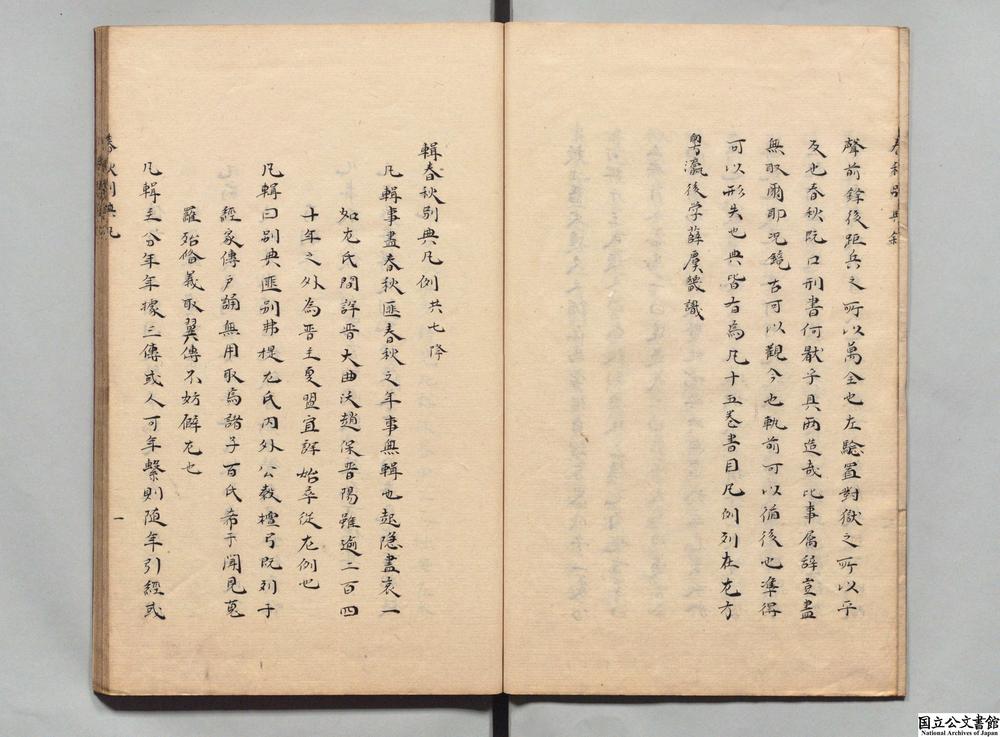 聲前鋒後距兵之所以萬全也左驗置對獄之所以平
反也春秋既口刑書何獸乎具兩造哉比事属辞豈盡
無取爾耶况鏡古可以觀今也軌前可以循後也準得
可以形失也典皆有焉凡十五卷書目凡例列在左方
粤瀛後学薛虞畿識
輯春秋别典凡例 共七降
凡輯事盡春秋匪春秋之年事無輯也起隠盡哀二
如左氏間詳晋大曲沃趙保晋陽雖逾二百四
十年之外為晋主夏盟宜詳始卒從左例也
凡輯曰别典匪别弗提左氏内外公糓檀弓既列于
經家傳戸誦無用取焉諸子百氏希于聞見蒐
羅殆俻義取翼傳不妨僻左也
凡輯主分年年據三傳或人可年繫則随年引經或
春秋别典凡
一
春秋别典叙
国立公文書館
National Archives of Japan